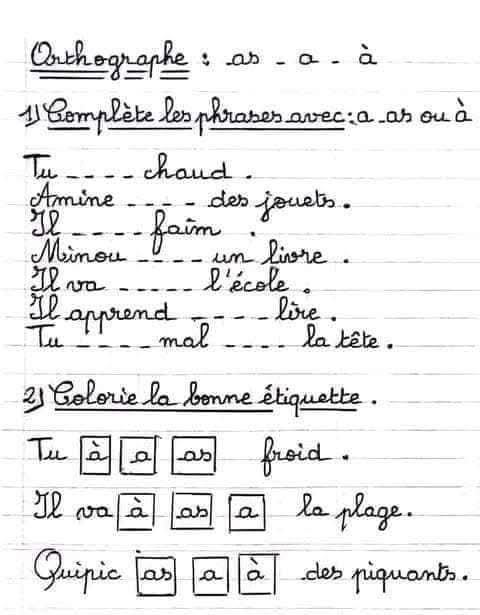 Orthographe : as - a - à
1) Complète les phrases avec : a . as ou à
Tu - - - - chaud .
Amine - - - - des jouets .
Il - - - - faim .
Minou - - - - un livre .
Il va - - - - - l'école .
Il apprend - - - - lire .
Tu - - - - mal - - - - la tête .
2) Colorie la bonne étiquette .
Tu à a as froid .
Il va à as a la plage .
Quipic as a à des piquants .